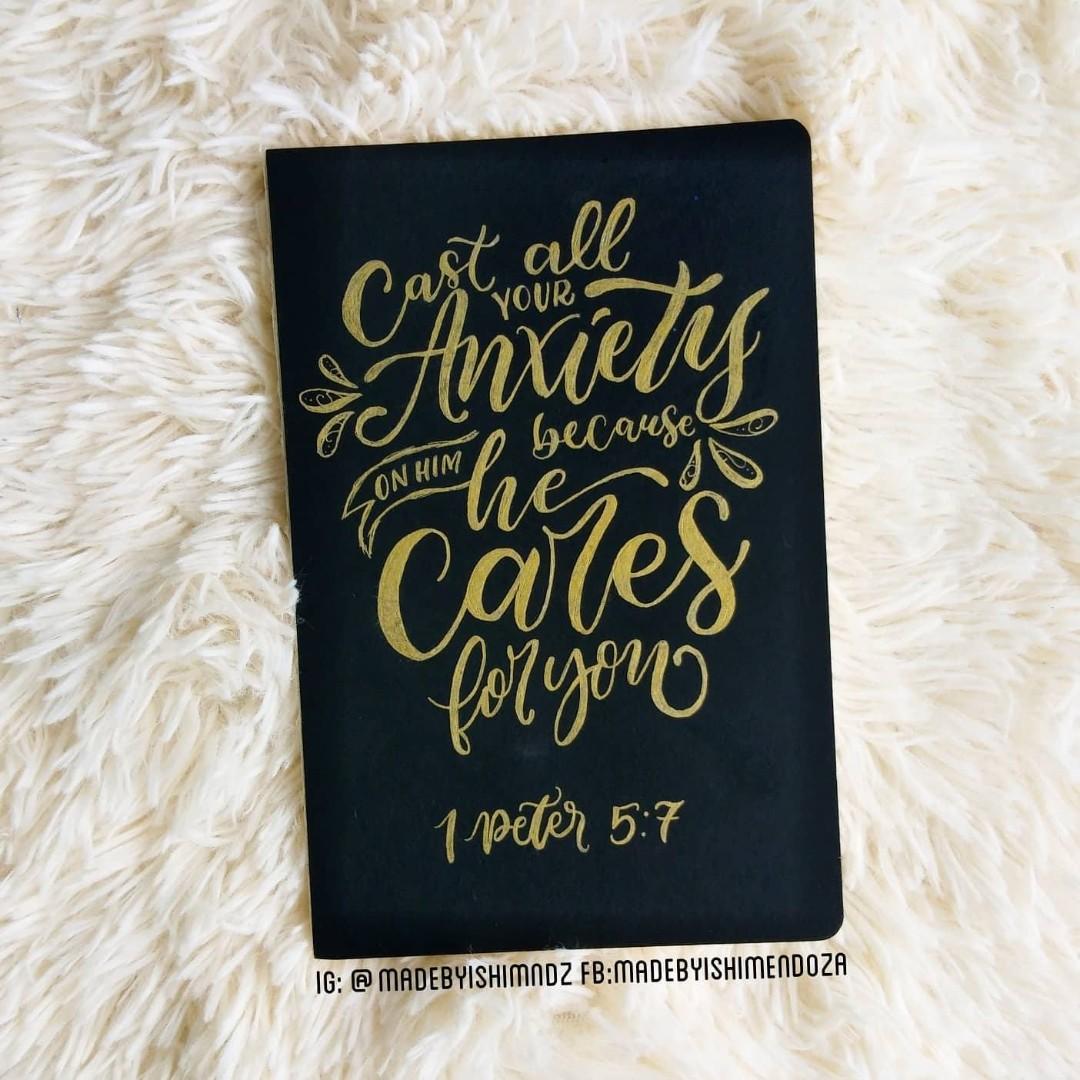 Cast all
YOUR
Anxiety
ON HIM
because
he
Cares
for you
1 peter 5:7
IG: @MADEBYISHIMNDZ FB:MADEBYISHIMENDOZA